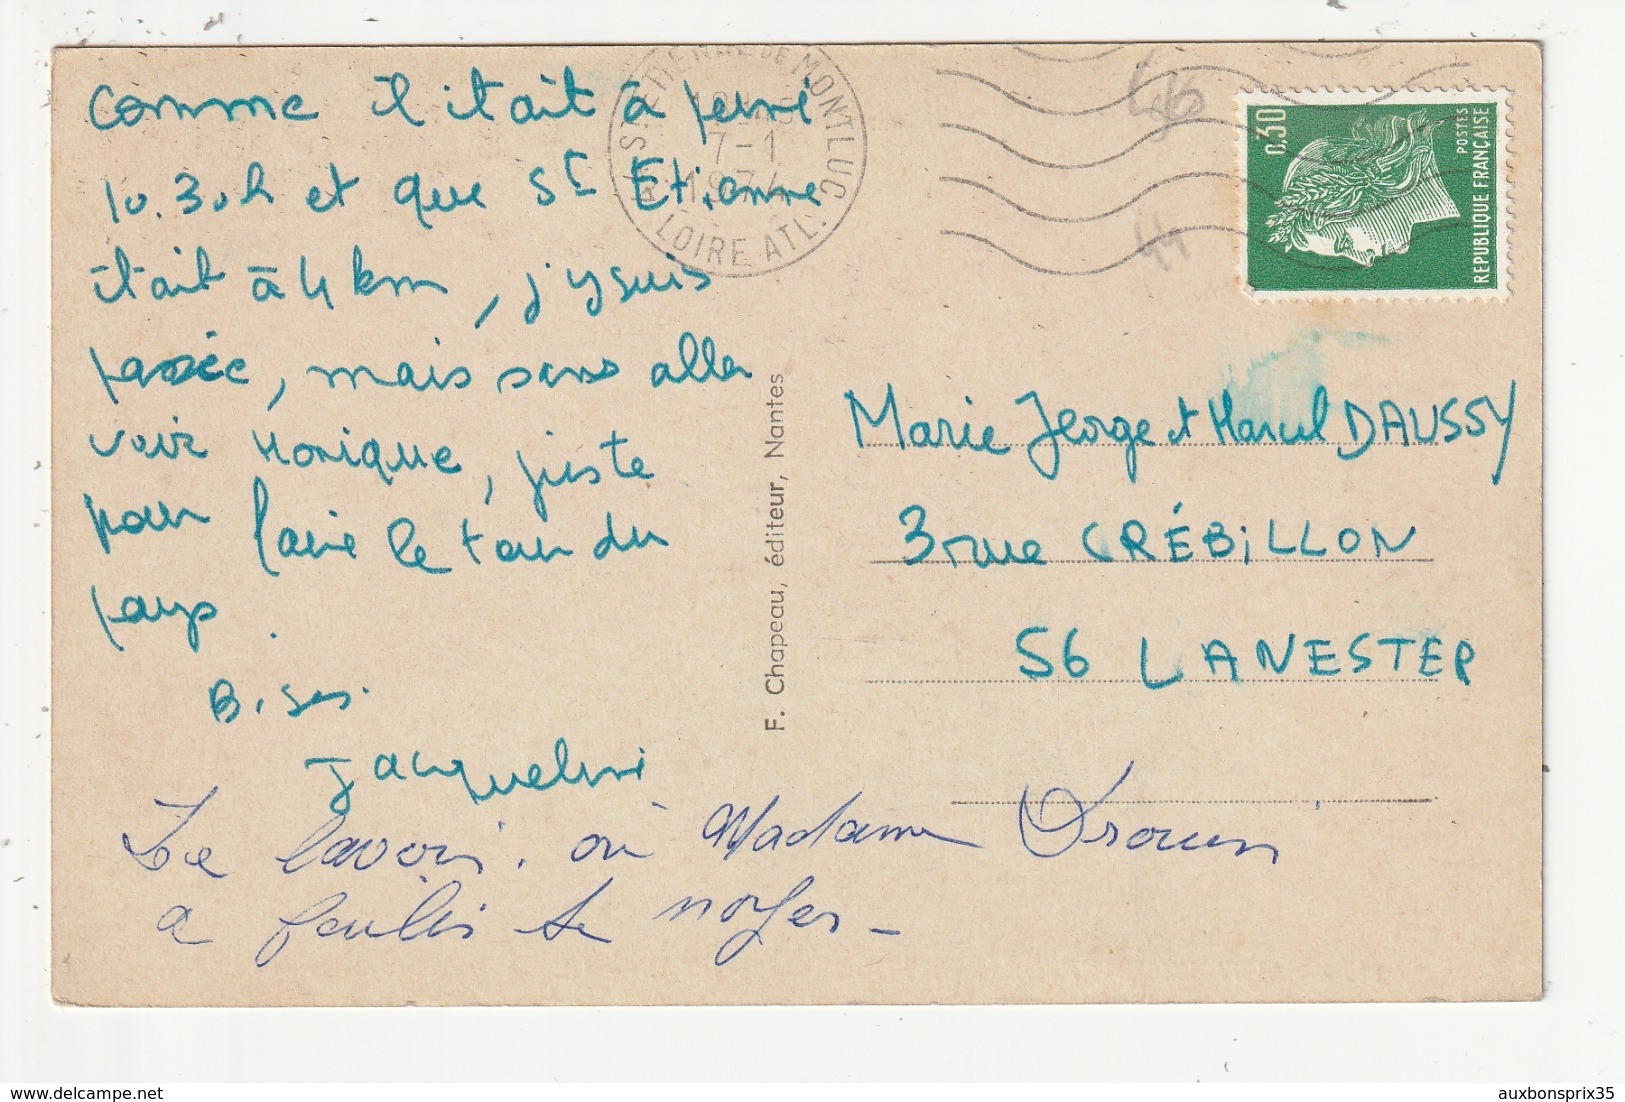 comme il était à peine
10.30h et que St Etienne
était à 4 km, j'y suis
passée, mais sans aller
voir Monique, juste
pour faire le tour du
pays.
Bises.
Jacqueline
Le lavoir. où Madame Drouin
a failli se noyer -
F. Chapeau, éditeur, Nantes
ST ETIENNE DE MONTLUC
7-1
1974
LOIRE ATL.
44
0,30
POSTES
REPUBLIQUE FRANÇAISE
Marie Jeorge et Marcel DAUSSY
3 rue CRÉBILLON
56 LANESTER
delcampe.net
auxbonsprix35